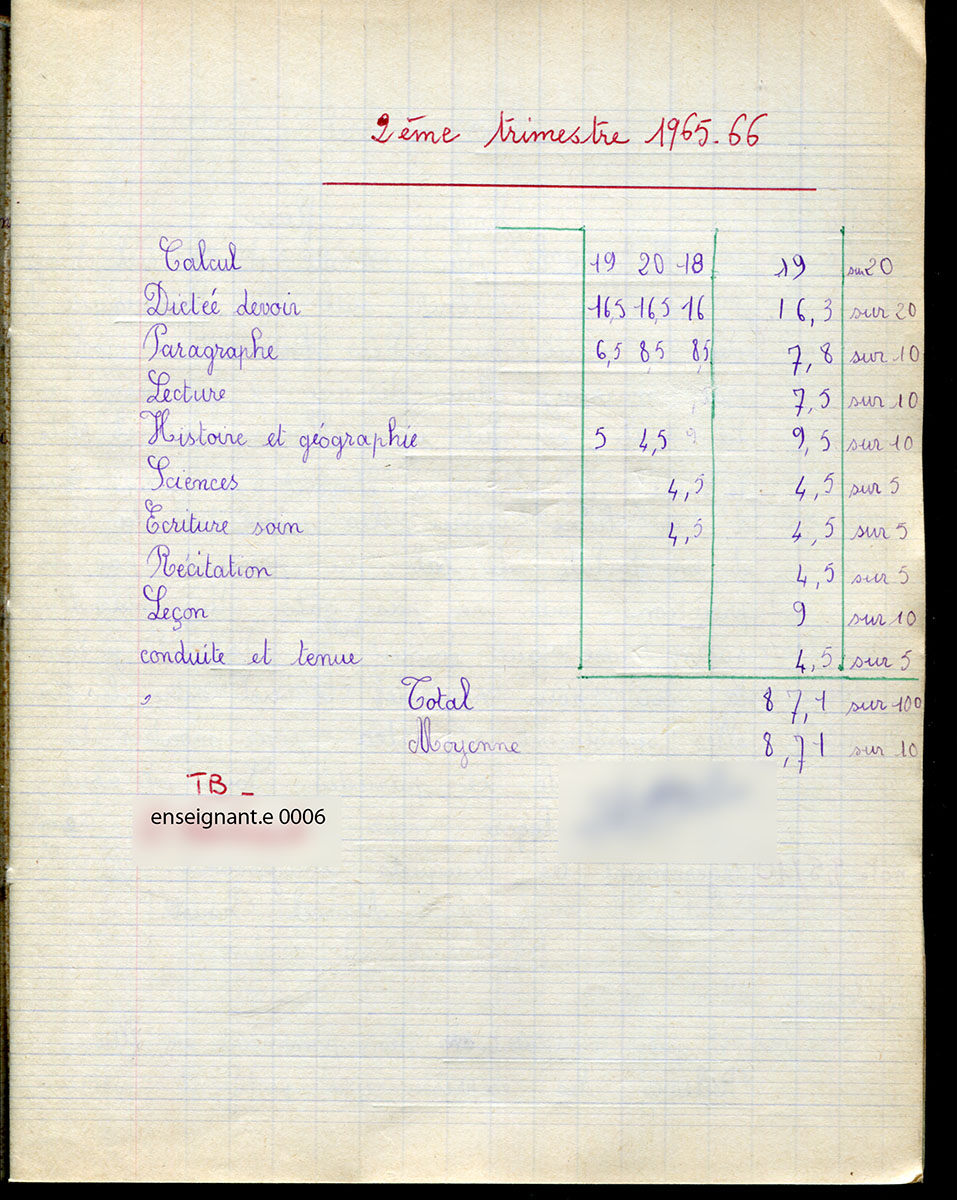 2ème trimestre 1965-66
Calcul 19 20 18 19 sur 20
Dictéé devoir 16,5 16,5 16 16,3 sur 20
Paragraphe 6,5 8,5 8,5 7,8 sur 10
Lecture 7,5 sur 10
Histoire et géographie 5 4,5 9,5 sur 10
Sciences 4,5 4,5 sur 5
Ecriture soin 4,5 4,5 sur 5
Récitation 4,5 sur 5
Leçon 9 sur 10
conduite et tenue 4,5 sur 5
Total 87,1 sur 100
Moyenne 8,71 sur 10
TB -
enseignant.e 0006